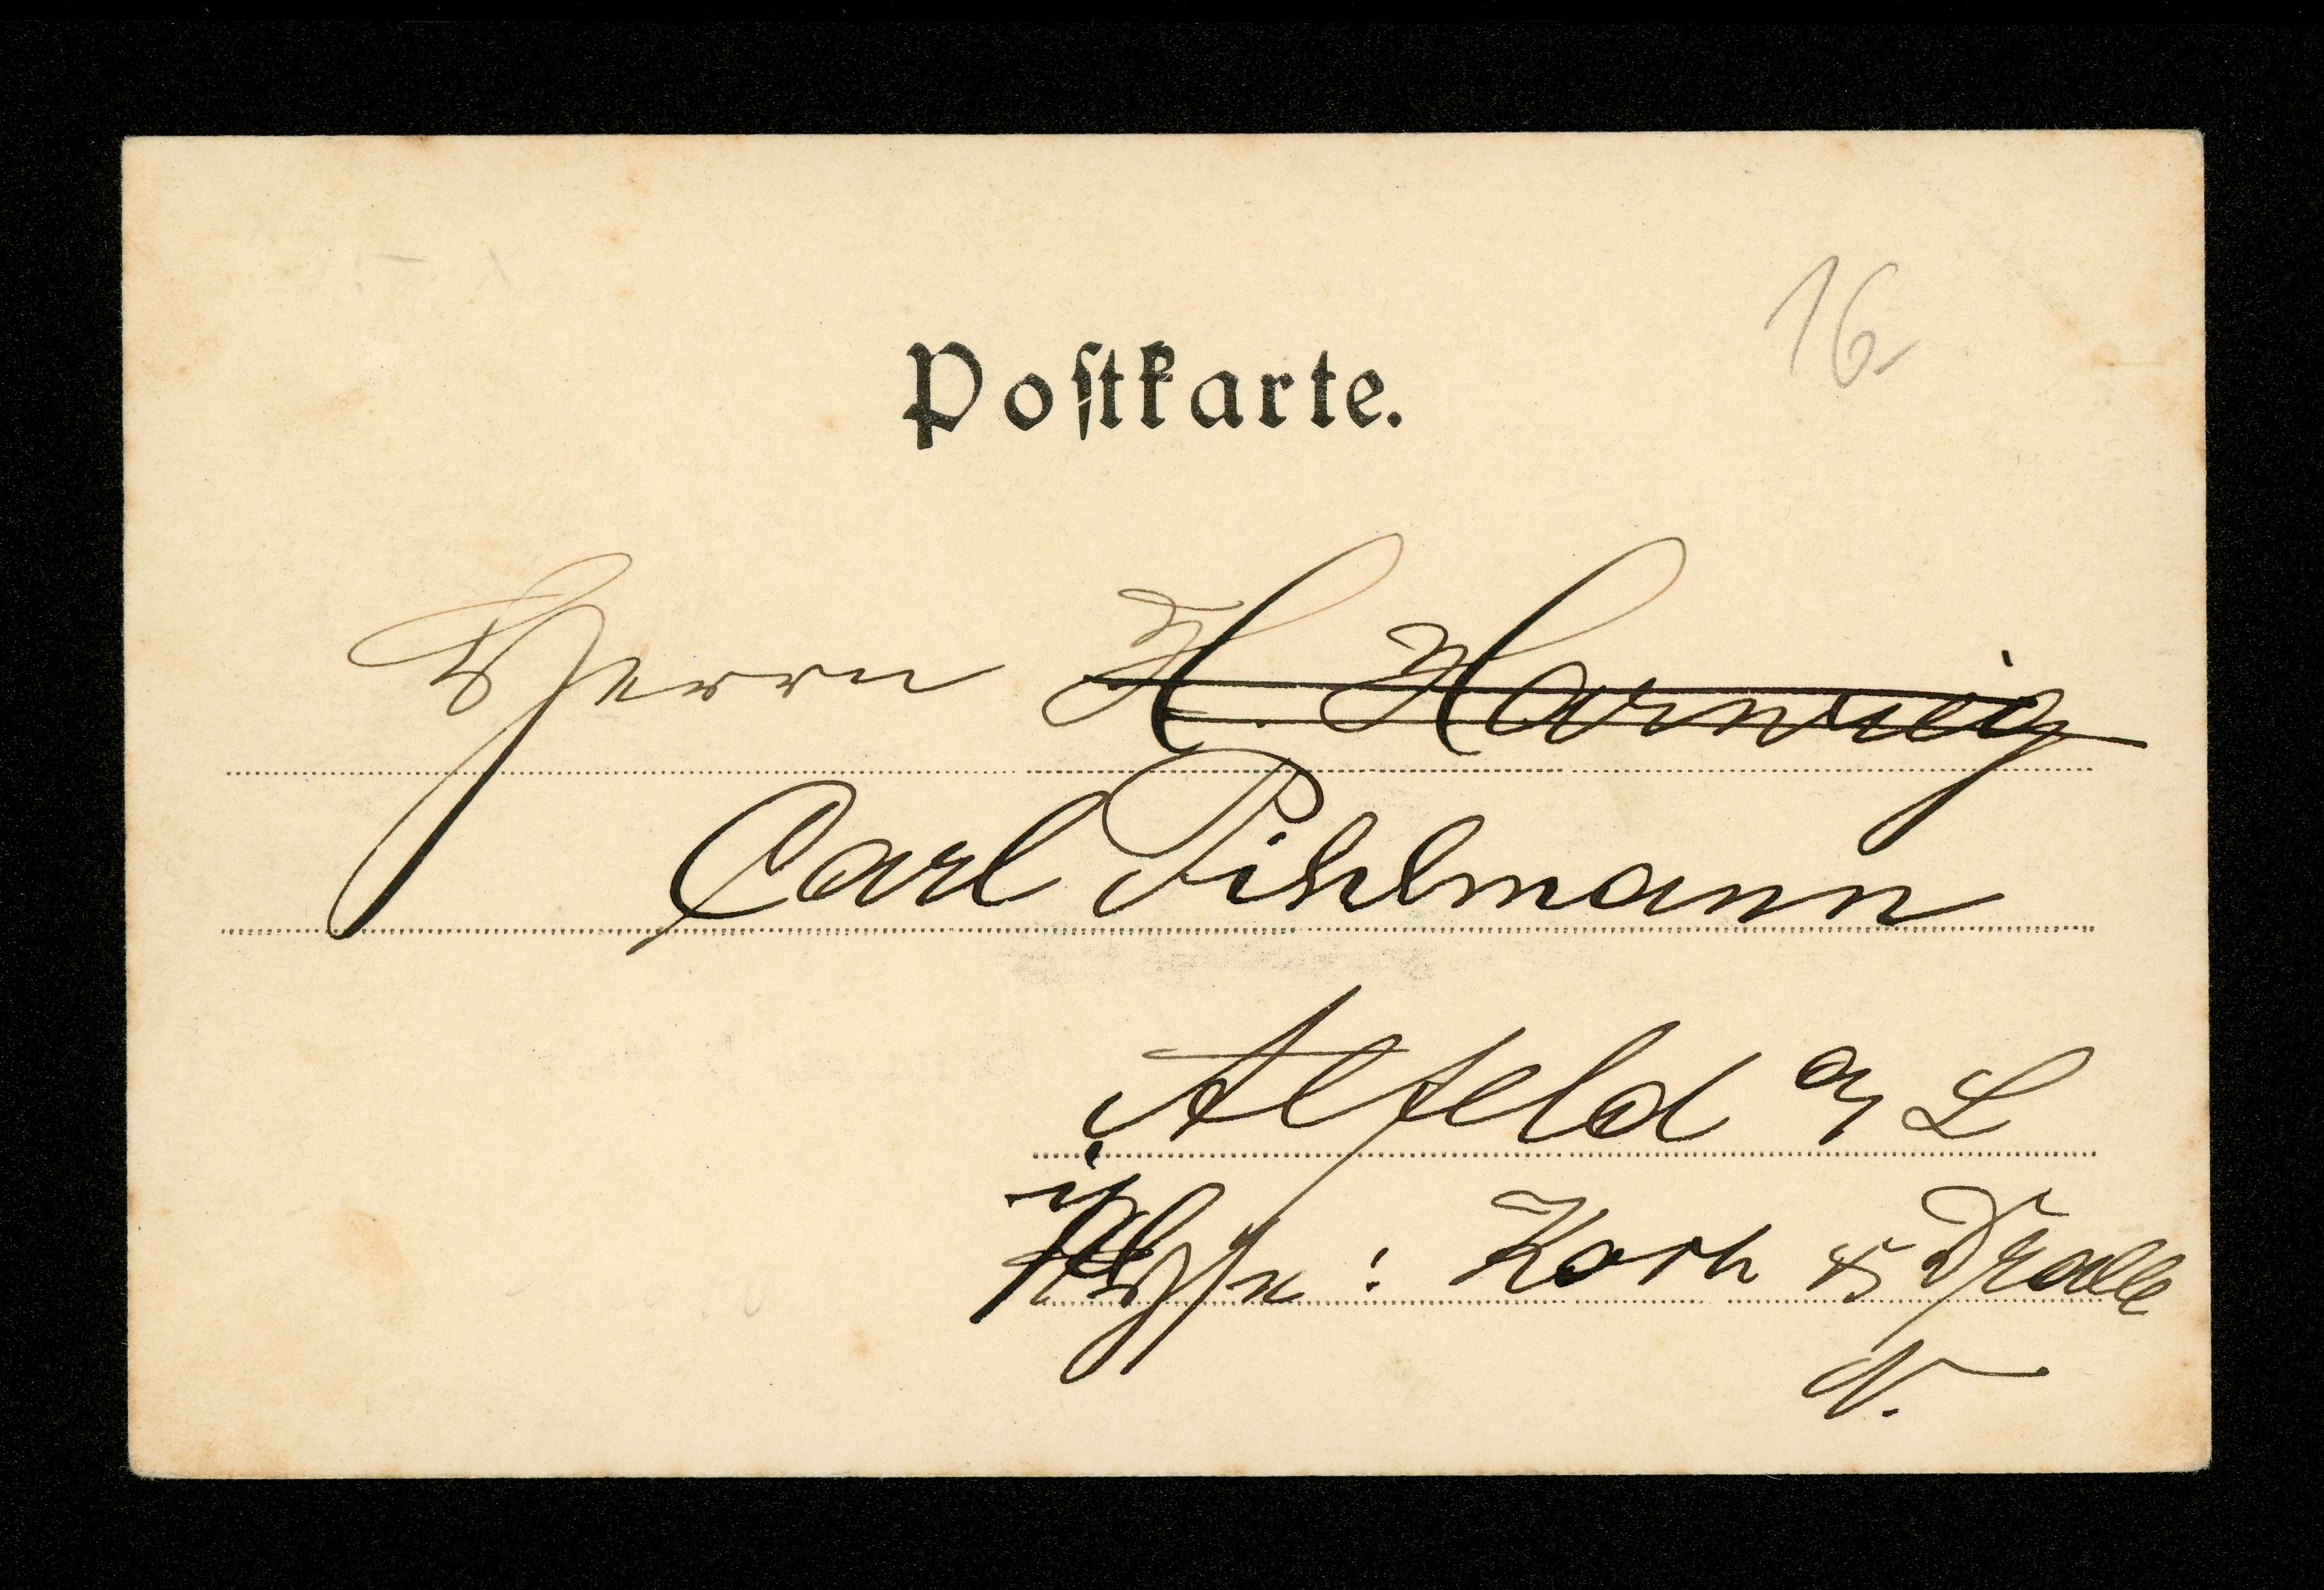 16
Poſtkarte.
Herrn H. Harwig
Carl Pihlmann
Alfeld a/L
Koch & Dralle
N.